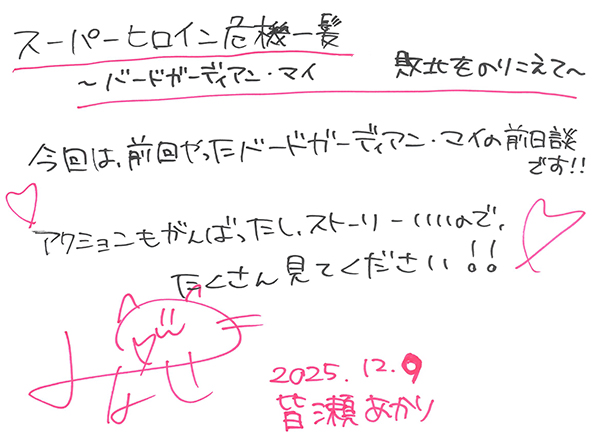 スーパーヒロイン危機一髪
～バードガーディアン・マイ 敗北をのりこえて～
今回は、前回やったバードガーディアン・マイの前日談
です!!
アクションもがんばったし、ストーリーいいので、
たくさん見てください!!
2025.12.9
皆瀬あかり